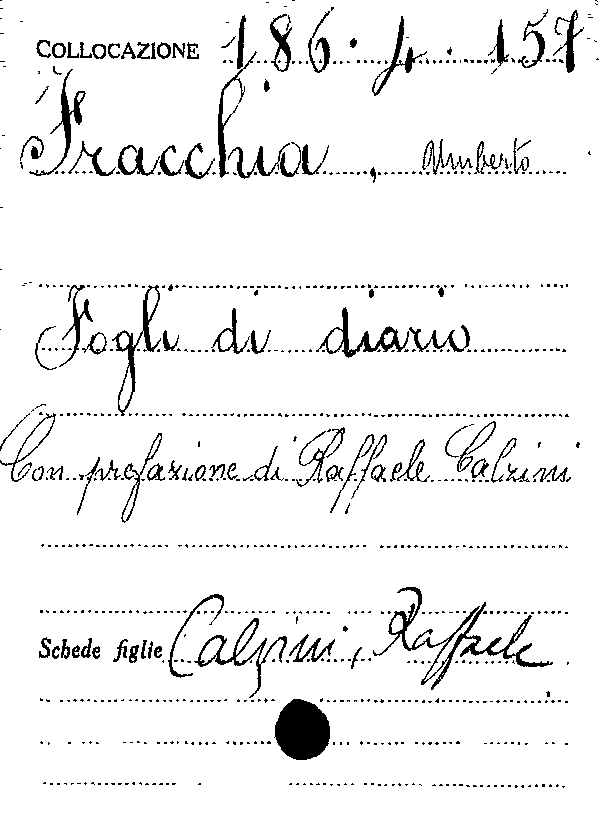 COLLOCAZIONE 186.4.157
Fracchia, Umberto
Fogli di diario
Con prefazione di Raffaele Calzini
Schede figlie Calzini, Raffaele